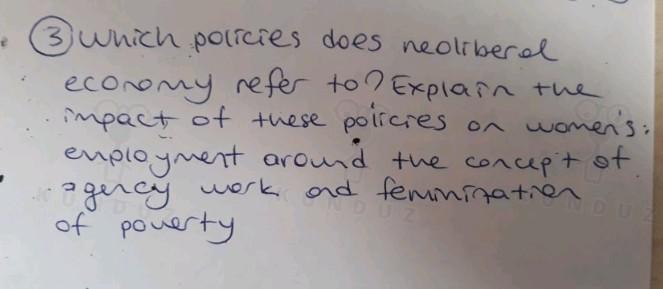 ③ Which policies does neoliberal
economy refer to? Explain the
impact of these policies on women's
employment around the concept of
agency work and feminization
of poverty
KUNDUZ